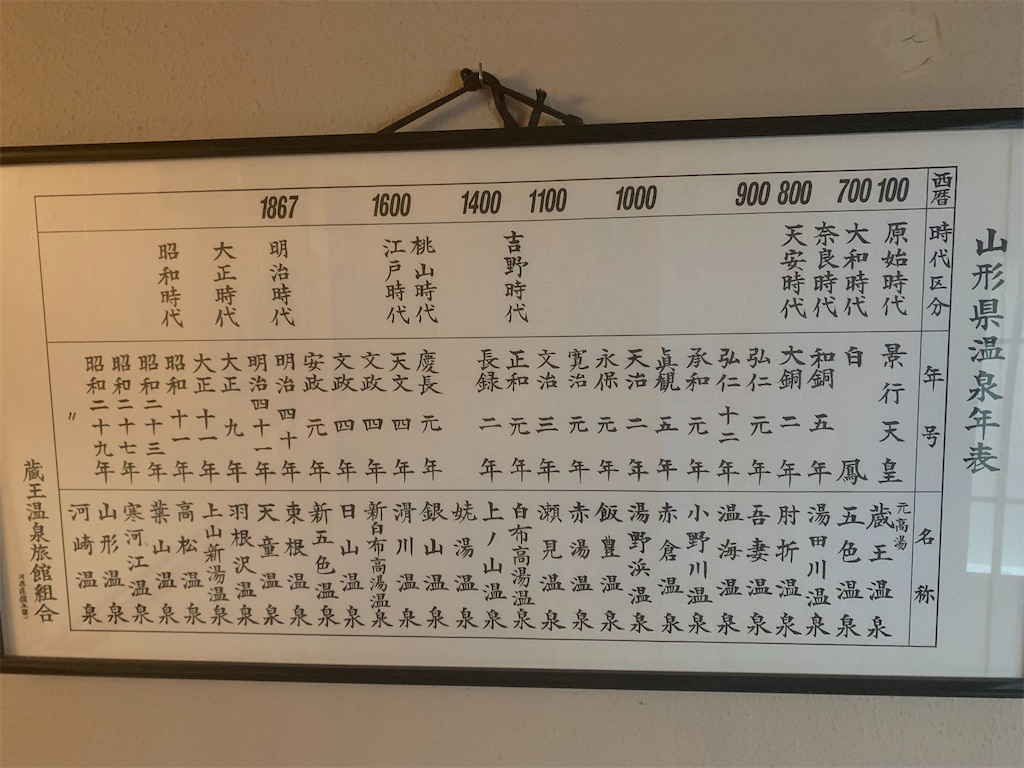 山形県温泉年表
西暦
100
700
800
900
1000
1100
1400
1600
1867
時代区分
原始時代
大和時代
奈良時代
天安時代
吉野時代
桃山時代
江戸時代
明治時代
大正時代
昭和時代
年号
景行天皇
白鳳
和銅五年
大銅二年
弘仁元年
弘仁十二年
承和元年
眞観五年
天治二年
永保元年
寛治元年
文治三年
正和元年
長録二年
慶長元年
天文四年
文政四年
文政四年
安政元年
明治四十年
明治四十一年
大正九年
大正十一年
昭和十一年
昭和二十三年
昭和二十七年
昭和二十九年
〃
名称
元高湯
蔵王温泉
五色温泉
湯田川温泉
肘折温泉
吾妻温泉
温海温泉
小野川温泉
赤倉温泉
湯野浜温泉
飯豊温泉
赤湯温泉
瀬見温泉
白布高湯温泉
上ノ山温泉
姥湯温泉
銀山温泉
滑川温泉
新白布高湯温泉
日山温泉
新五色温泉
東根温泉
天童温泉
羽根沢温泉
上山新湯温泉
高松温泉
葉山温泉
寒河江温泉
山形温泉
河崎温泉
蔵王温泉旅館組合